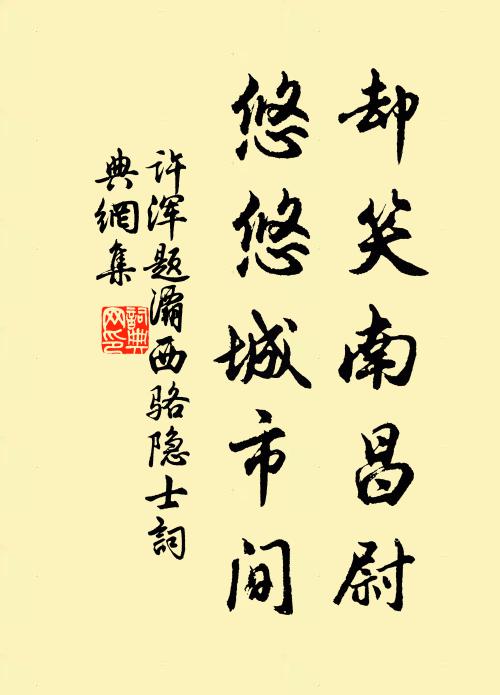 却笑南昌尉
悠悠城市间
许浑题灞西骆隐士詞
典網集
詞典网印